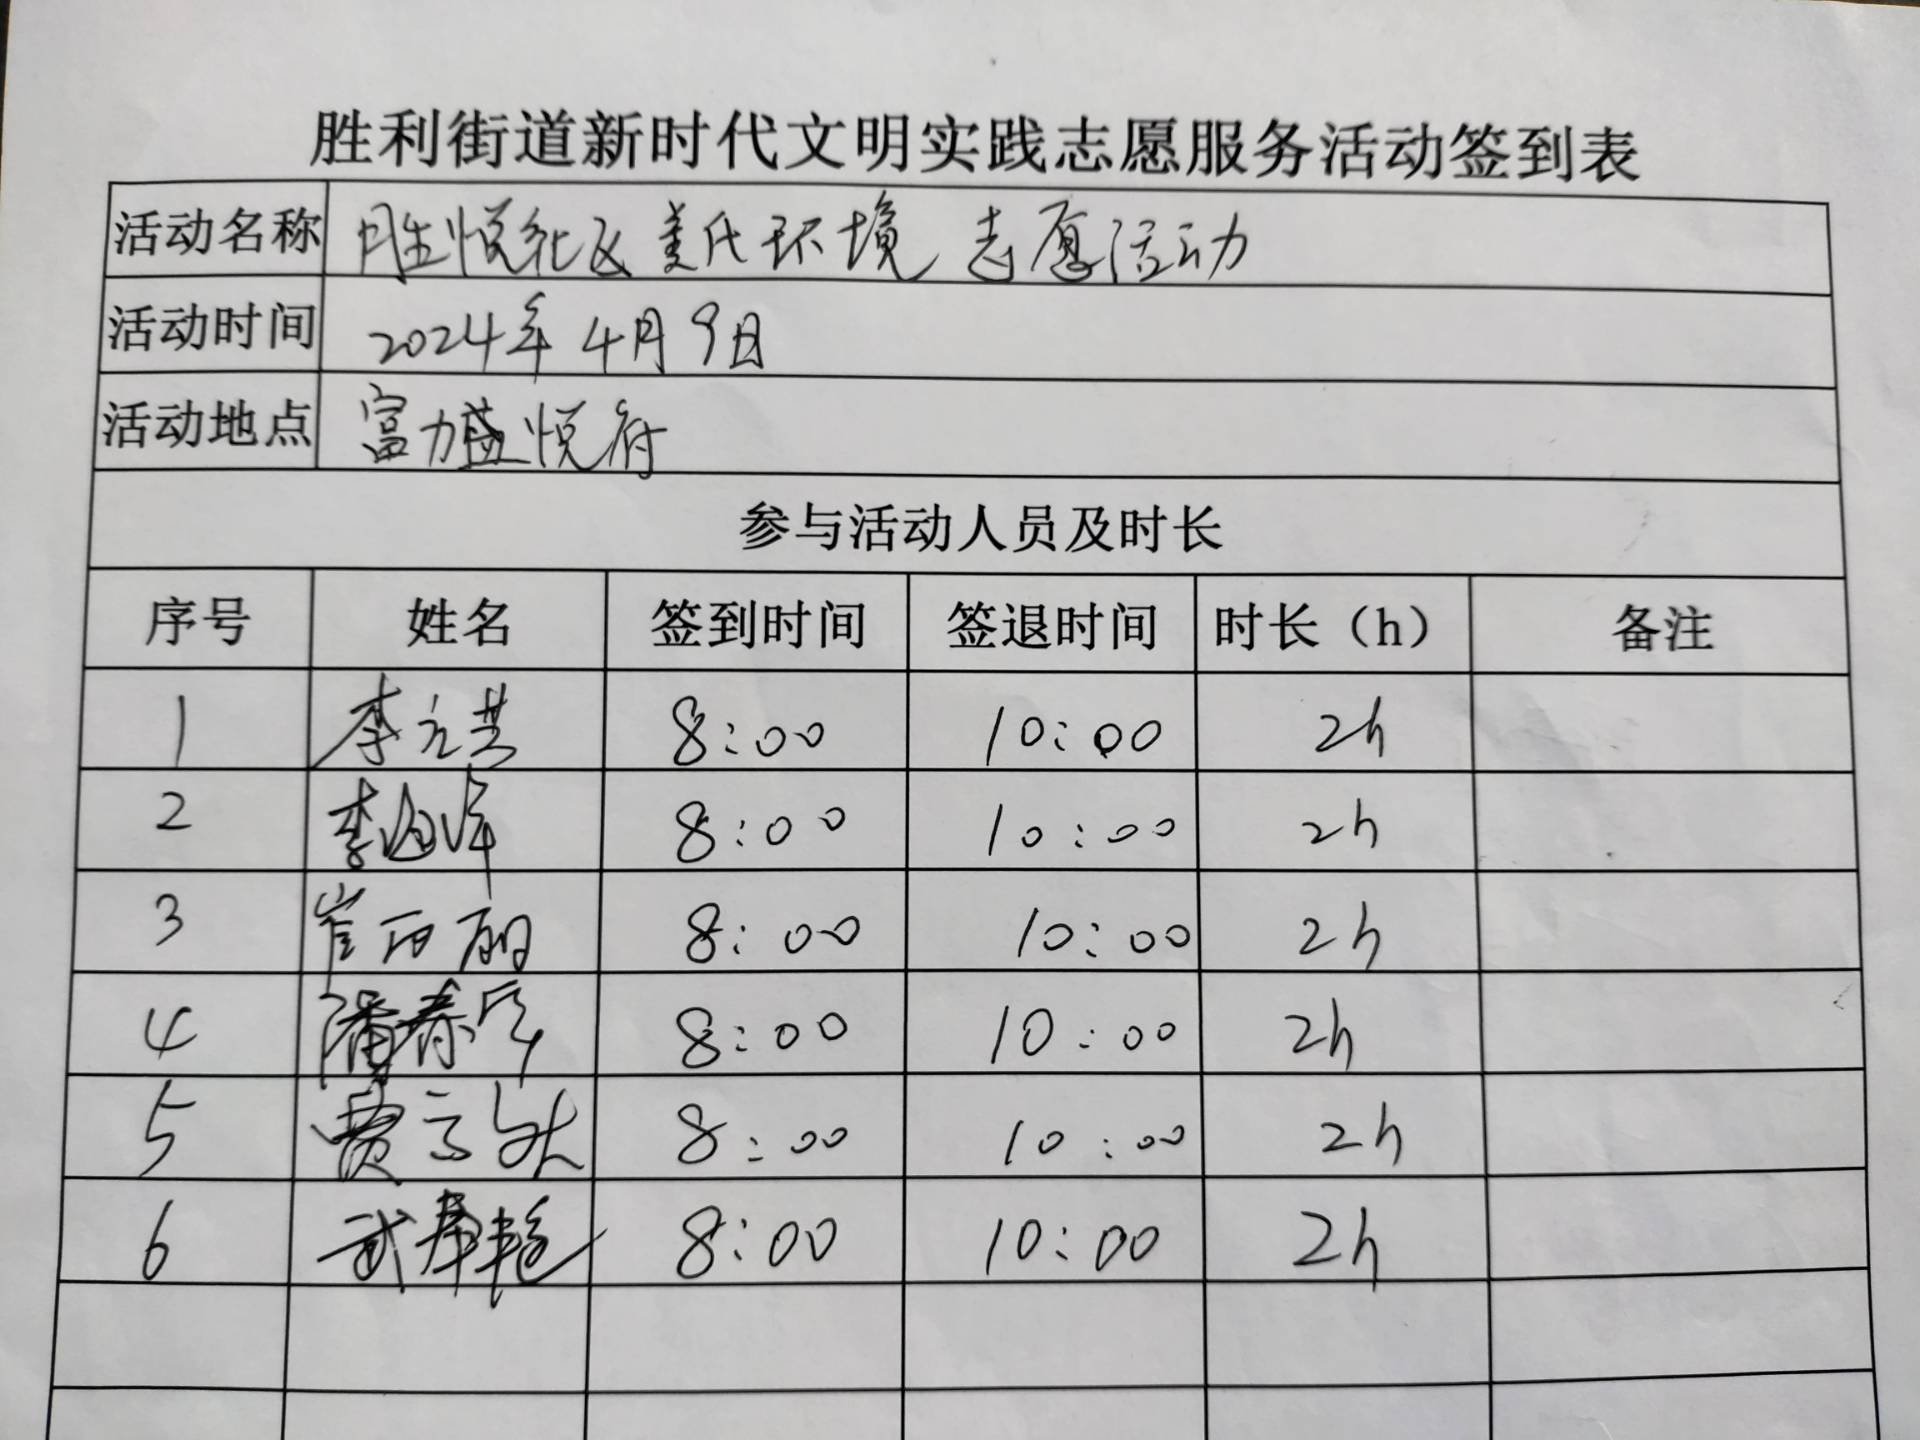 胜利街道新时代文明实践志愿服务活动签到表
活动名称 胜悦社区美化环境志愿活动
活动时间 2024年4月9日
活动地点 富力盛悦府
参与活动人员及时长
序号 姓名 签到时间 签退时间 时长（h） 备注
1 李元芸 8:00 10:00 2h
2 李 8:00 10:00 2h
3 崔丽丽 8:00 10:00 2h
4 潘春 8:00 10:00 2h
5 贾 8:00 10:00 2h
6 武春艳 8:00 10:00 2h